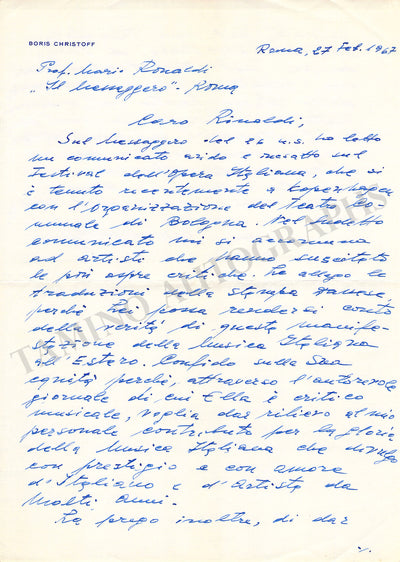 BORIS CHRISTOFF
Roma, 27 Feb. 1967
Prof. Mario Rinaldi
"Il Messaggero" - Roma
Caro Rinaldi,
Sul Messaggero del 26 u.s. ho letto
un comunicato arido e ricatto sul
Festival dell'Opera Italiana, che si
è tenuto recentemente a Kopenhagen
con l'Organizzazione del Teatro Co-
munale di Bologna. Nel suddetto
comunicato mi si accomuna
ad artisti che hanno suscitato
le più aspre critiche. Le allego le
traduzioni della stampa danese
perché Lei possa rendersi conto
della verità di questa manife-
stazione della Musica Italiana
all'Estero. Confido sulla Sua
equità perché, attraverso l'autorevole
giornale di cui Ella è critico
musicale, voglia dar rilievo al mio
personale contributo per la gloria
della Musica Italiana che divulgo
con prestigio e con amore
d'Italiano e d'Artista da
molti anni.
La prego inoltre, di dar
./.
TAMINO AUTOGRAPHS